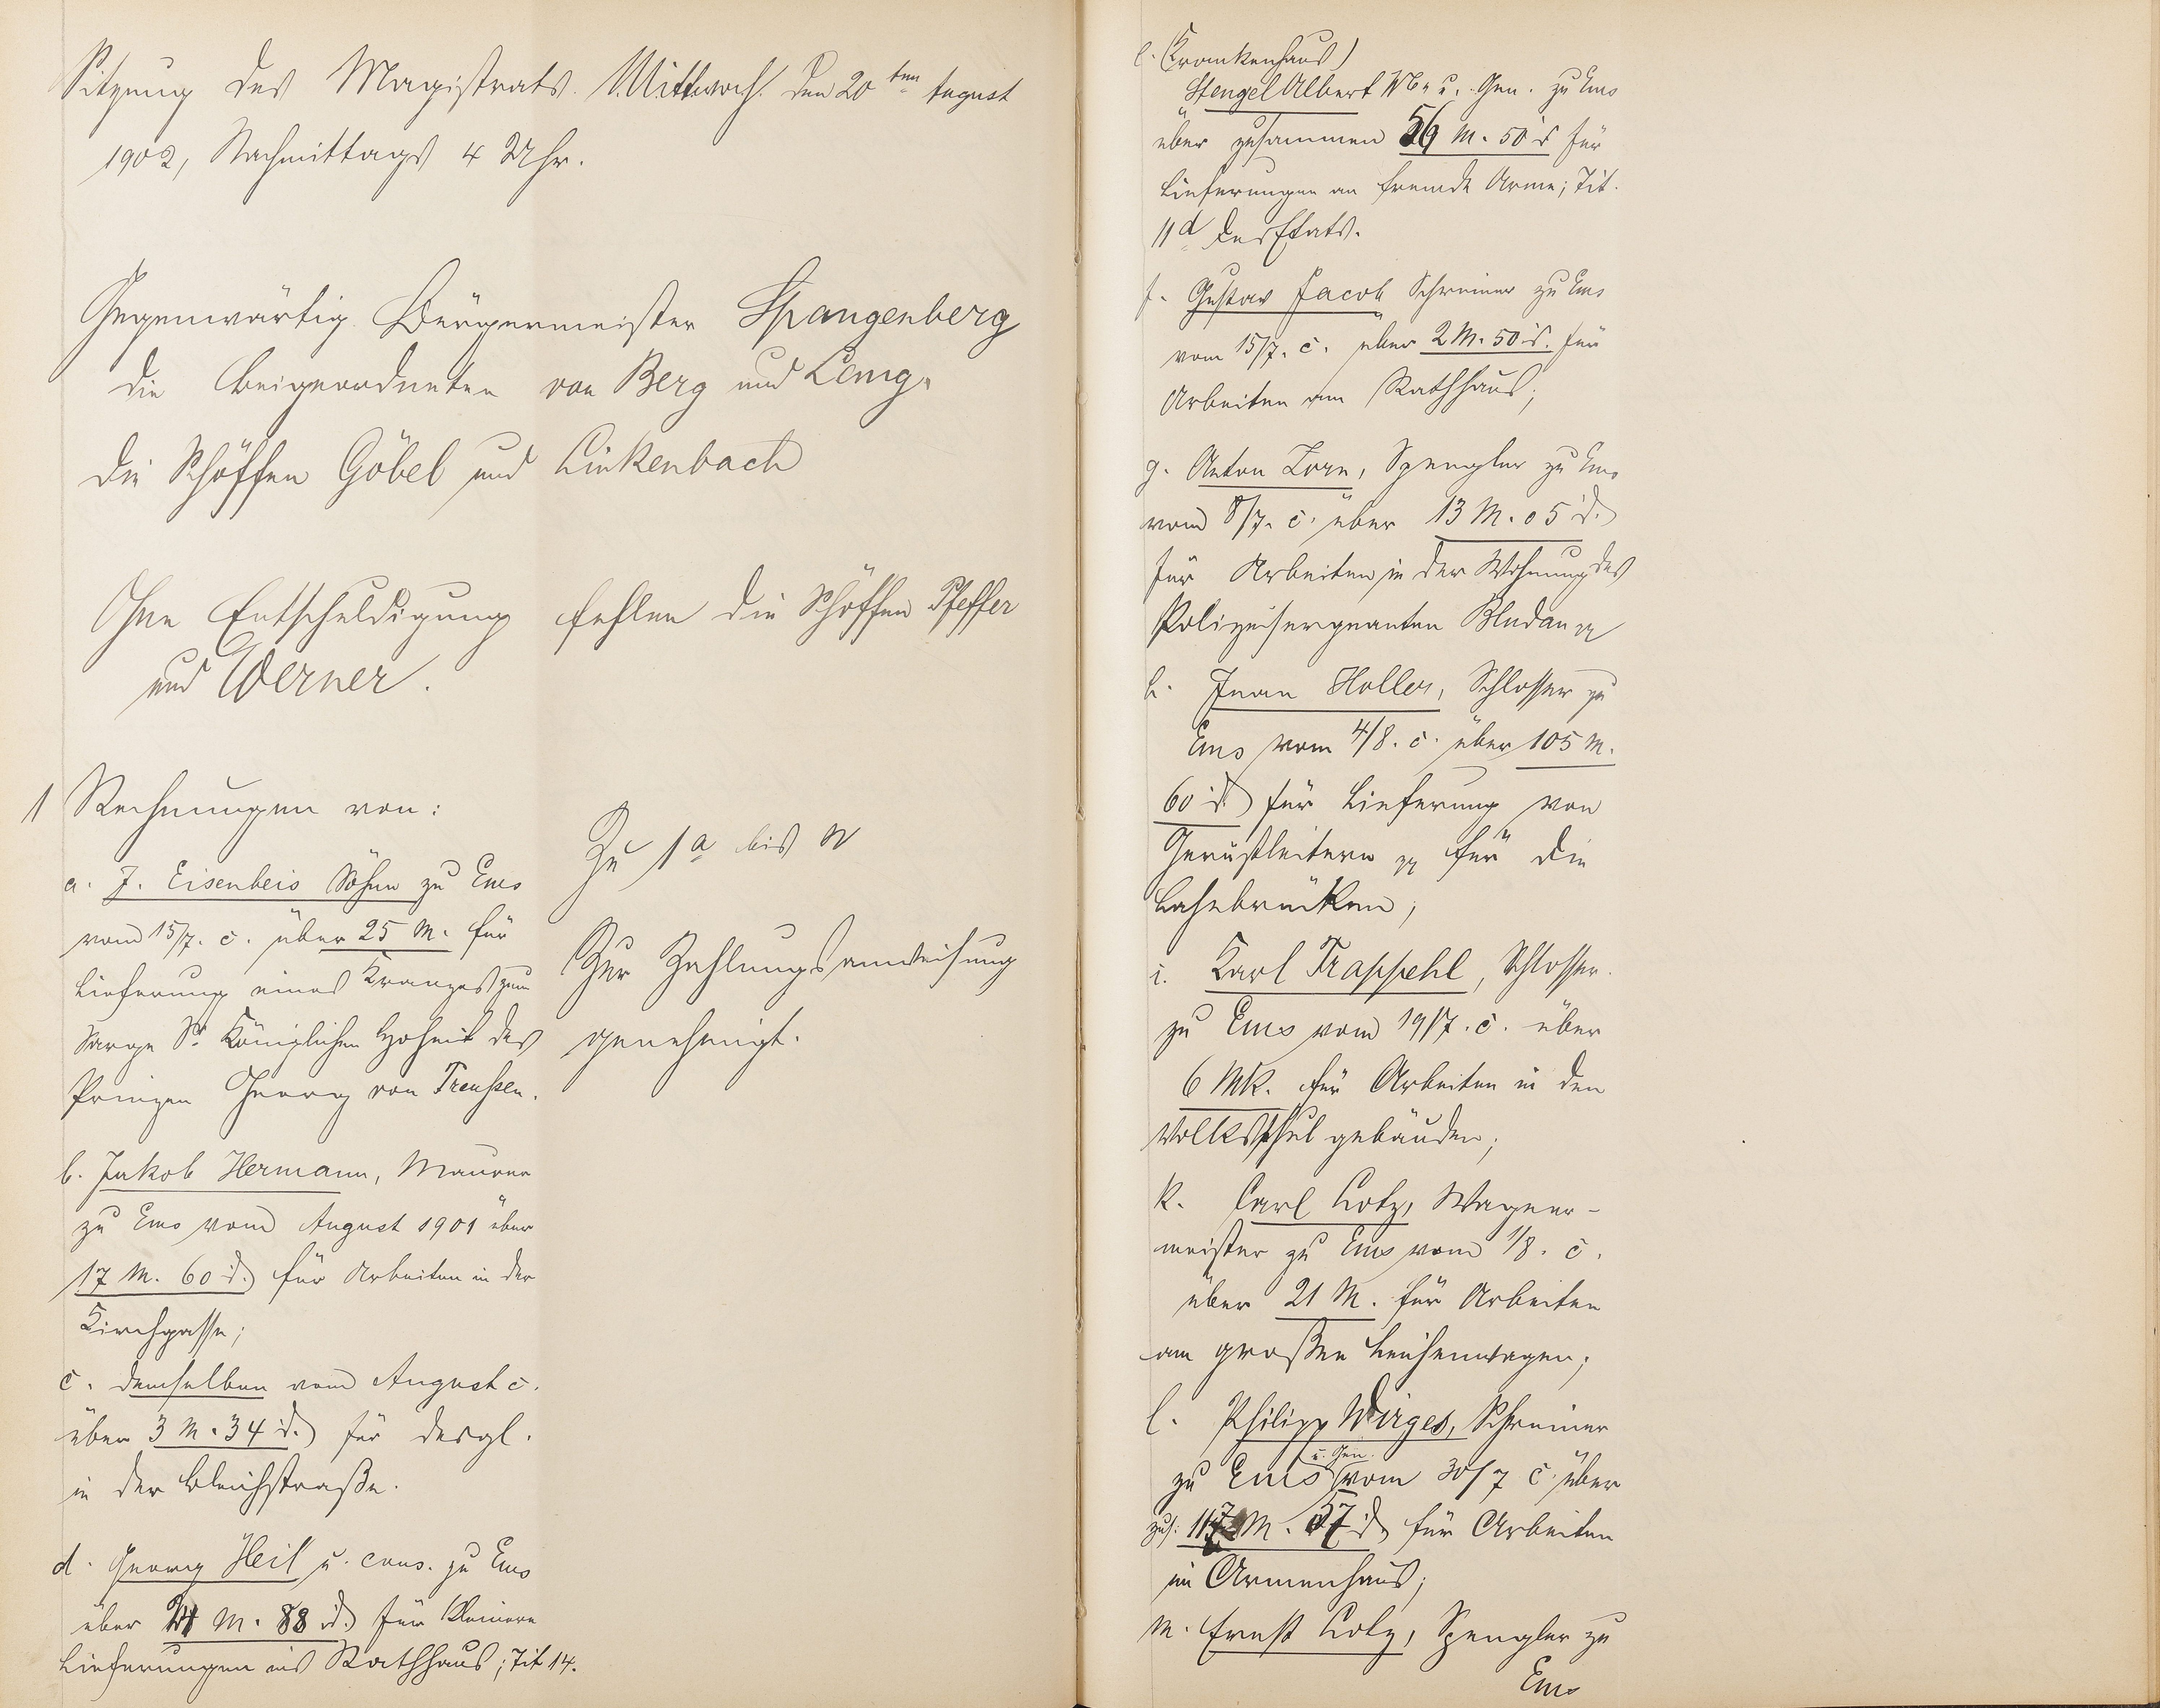 Sitzung des Magistrats. Mittwoch den 20ten August
1902, Nachmittags 4 Uhr.
Gegenwärtig Bürgermeister Spangenberg
die Beigeordneten von Berg und Lemg.
die Schöffen Göbel und Linkenbach
Ohne Entschuldigung fehlen die Schöffen Pfeffer
und Werner.
1 Rechnungen von:
a. J. Eisenbeis Söhne zu Ems
vom 15/7. c. über 25 M. für
Lieferung eines Kranzes zum
Sarge Sr. Königlichen Hoheit des
Prinzen Georg von Preußen.
b. Jakob Hermann, Maurer
zu Ems vom August 1901 über
17 M. 60 d. für Arbeiten in der
Kirchgasse;
c. demselben vom August c.
über 3 M. 34 d. für desgl.
in der Bleichstraße.
d. Georg Heil u. cons. zu Ems
über M. 88 d. für kleinere
Lieferungen ins Rathhaus; Tit 14.
Zu 1a bis
Zur Zahlungsanweisung
genehmigt.
e. (Krankenhaus)
Stengel Albert Wb. u. Gen. zu Ems
über zusammen 56 M. 50 d für
Lieferungen an fremde Arme; Tit.
11d des Etats.
f. Gustav Jacob Schreiner zu Ems
vom 15/7. c. über 2 M. 50 d. für
Arbeiten am Rathhaus;
g. Anton Zorn, Spengler zu Ems
vom 8/7. c. über 13 M. 05 d.
für Arbeiten in der Wohnung des
Polizeisergeanten
h. Holler, Schlosser zu
Ems vom 4/8. c. über 105 M.
60 d. für Lieferung von
Gerüstleitern pp für die
Lahnbrücken;
i. Karl Trappehl, Schlosser
zu Ems vom 19/7. c. über
6 Mk. für Arbeiten in den
Volksschulgebäuden;
k. Carl Lotz, Wagner-
meister zu Ems vom 1/8. c.
über 21 M. für Arbeiten
am großen Leichenwagen;
l. Philipp Wirges, Schreiner
zu Ems u. Gen. vom 30/7 c. über
zus. 117 M. 57 d. für Arbeiten
im Armenhaus;
m. Ernst Lotz, Spengler zu
Ems